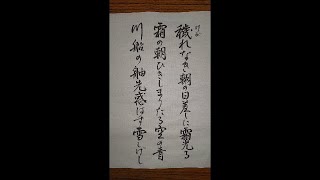 穢れなき朝の日差しに霜光る
霜の朝ひきしまりたる空の青
川船の舳先惑はす雪しげし